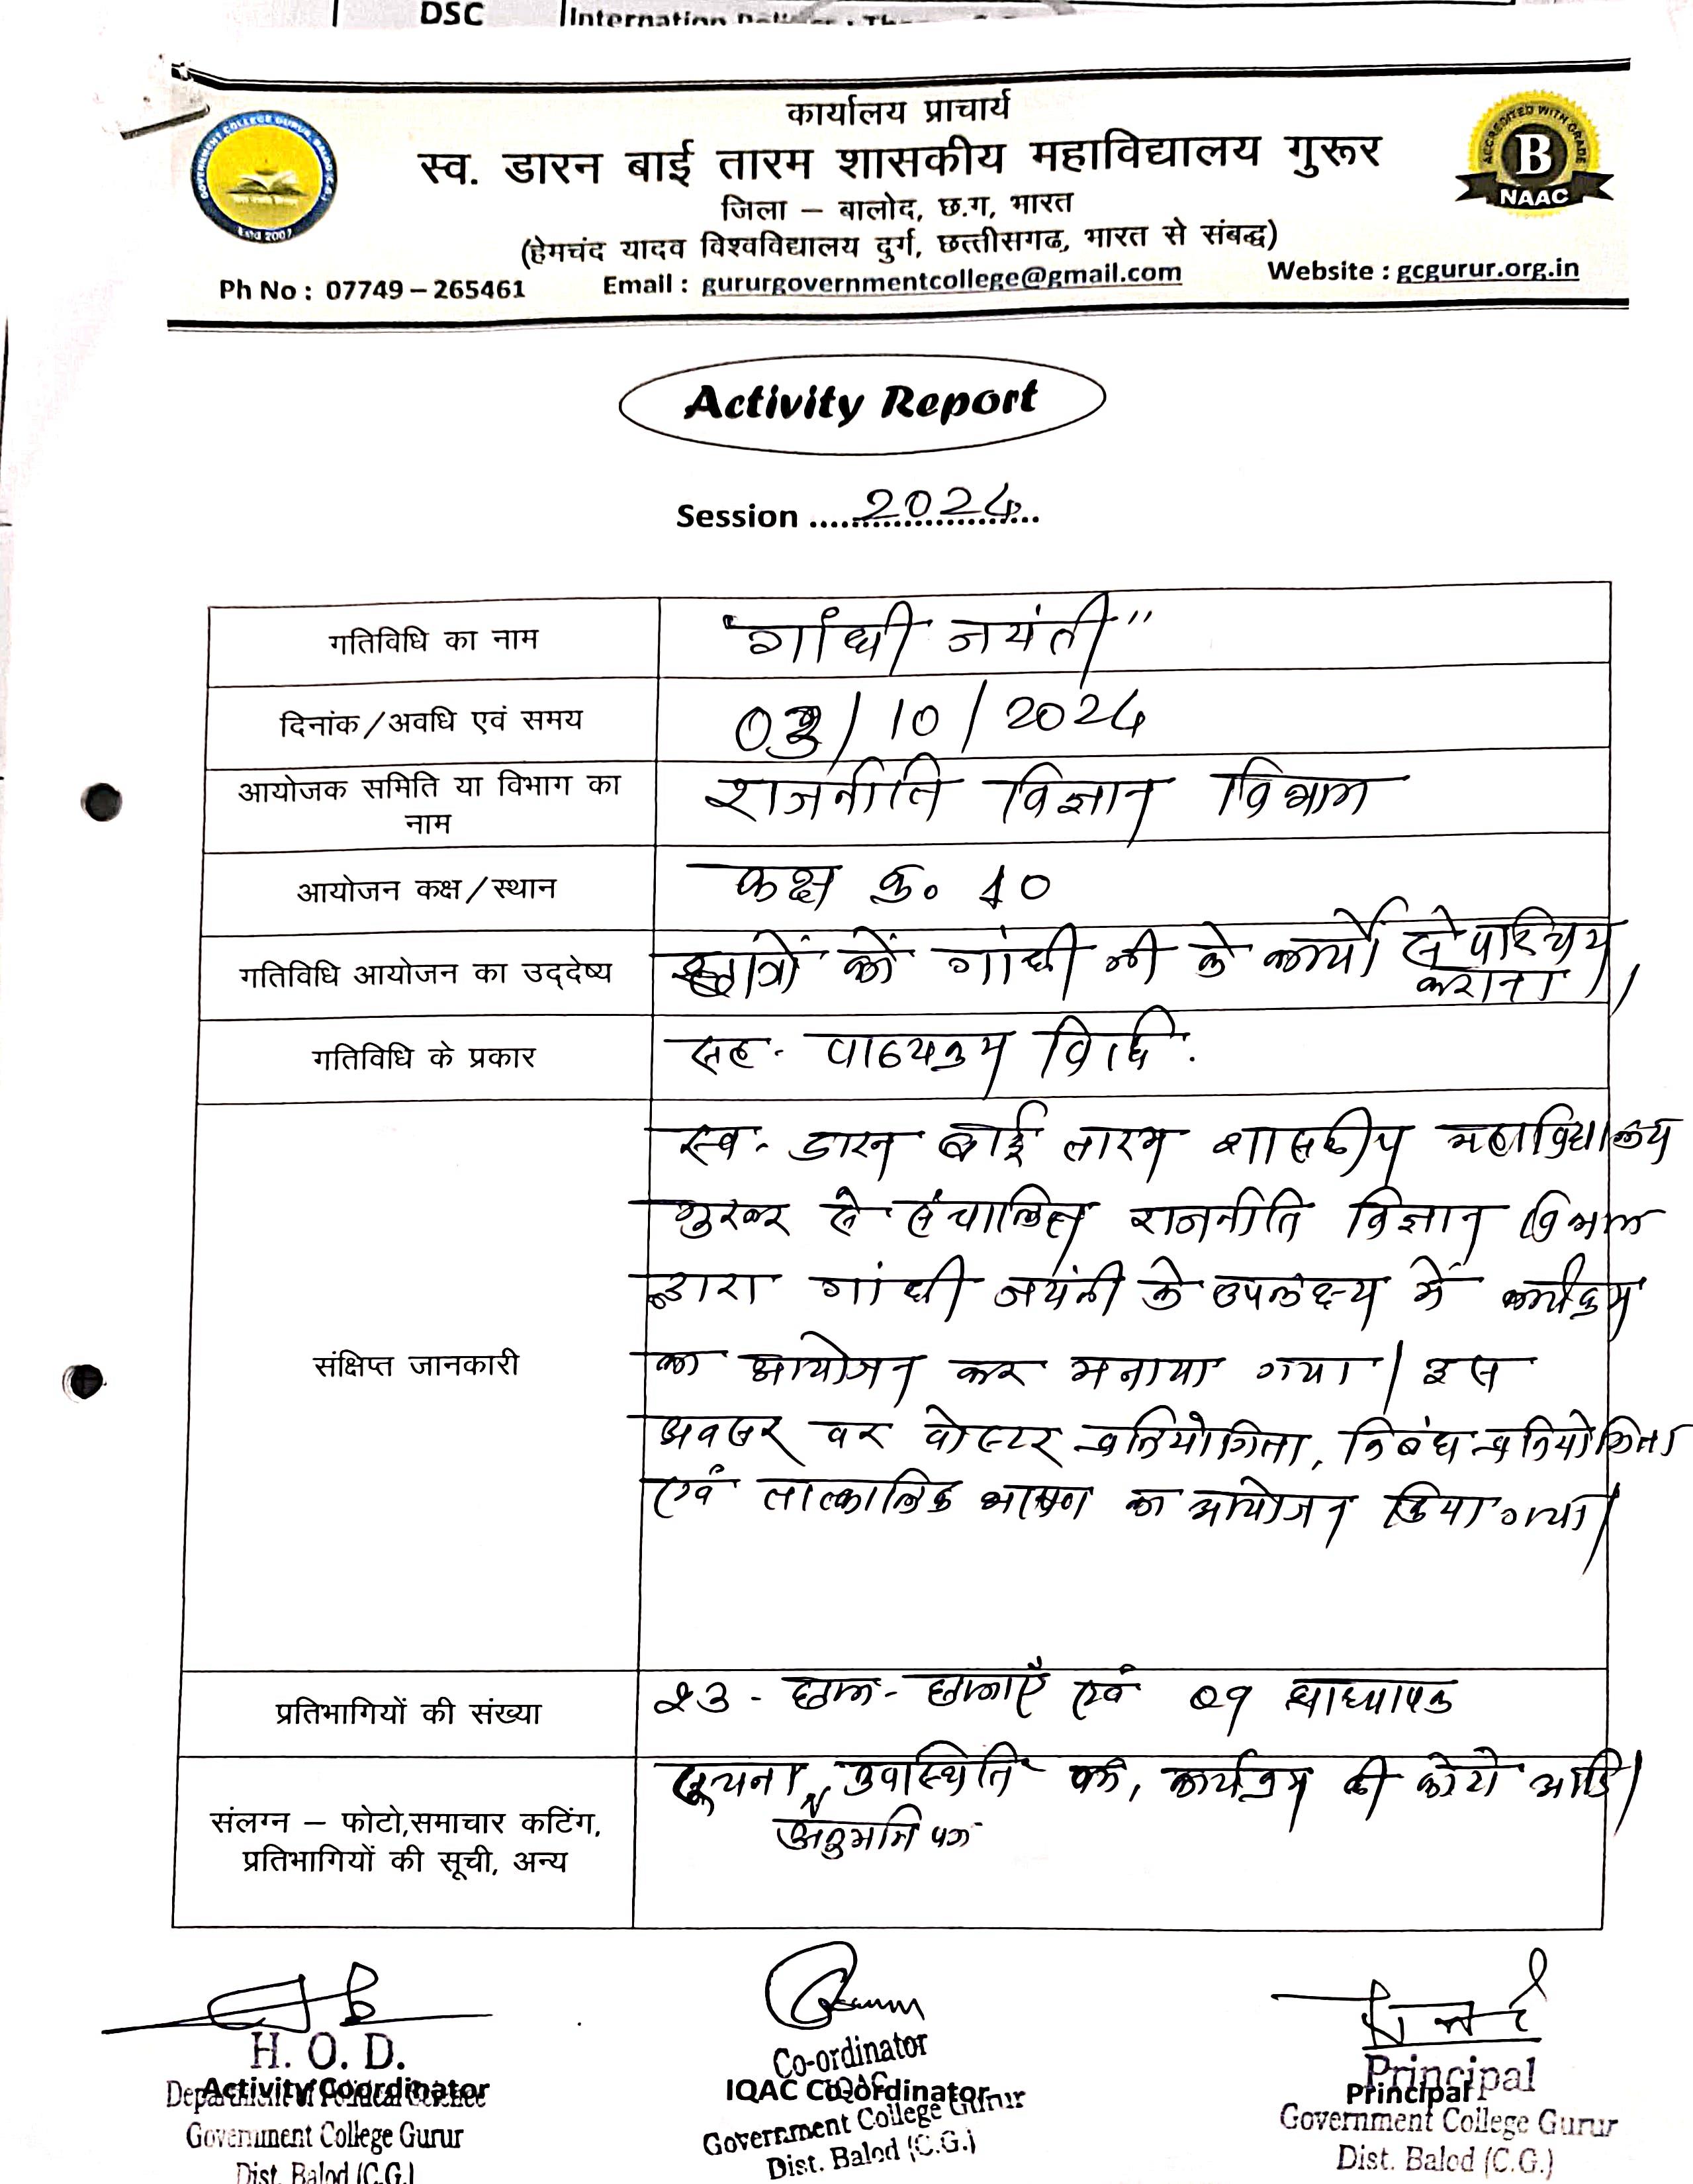 DSC
कार्यालय प्राचार्य
स्व. डारन बाई तारम शासकीय महाविद्यालय गुरूर
जिला – बालोद, छ.ग, भारत
(हेमचंद यादव विश्वविद्यालय दुर्ग, छत्तीसगढ, भारत से संबद्ध)
Ph No : 07749 – 265461 Email : gururgovernmentcollege@gmail.com Website : gcgurur.org.in
GOVERNMENT COLLEGE GURUR, BALOD (C.G.)
Estd 2007
ACCREDITED WITH GRADE
B
NAAC
Activity Report
Session ......2024......
गतिविधि का नाम
"गांधी जयंती"
दिनांक/अवधि एवं समय
03/10/2024
आयोजक समिति या विभाग का
नाम
राजनीति विज्ञान विभाग
आयोजन कक्ष/स्थान
कक्ष क्र. 10
गतिविधि आयोजन का उद्देष्य
छात्रों कों गांधी जी के कार्यो से परिचय
कराना।
गतिविधि के प्रकार
सह- पाठ्यक्रम विधि.
संक्षिप्त जानकारी
स्व. डारन बाई तारम शासकीय महाविद्यालय
गुरूर से संचालित राजनीति विज्ञान विभाग
द्वारा गांधी जयंती के उपलक्ष्य में कार्यक्रम
का आयोजन कर मनाया गया। इस
अवसर पर पोस्टर प्रतियोगिता, निबंध प्रतियोगिता
एवं तात्कालिक भाषण का आयोजन किया गया।
प्रतिभागियों की संख्या
23 - छात्र- छात्राएँ एवं 09 प्राध्यापक
संलग्न – फोटो,समाचार कटिंग,
प्रतिभागियों की सूची, अन्य
सूचना, उपस्थिति पत्रक, कार्यक्रम की फोटो आदि।
अनुमति पत्र
H. O. D.
Activity Coordinator
Department of Political Science
Government College Gurur
Dist. Balod (C.G.)
Co-ordinator
IQAC
IQAC Co-ordinator
Government College Gurur
Dist. Balod (C.G.)
Principal
Principal
Government College Gurur
Dist. Balod (C.G.)